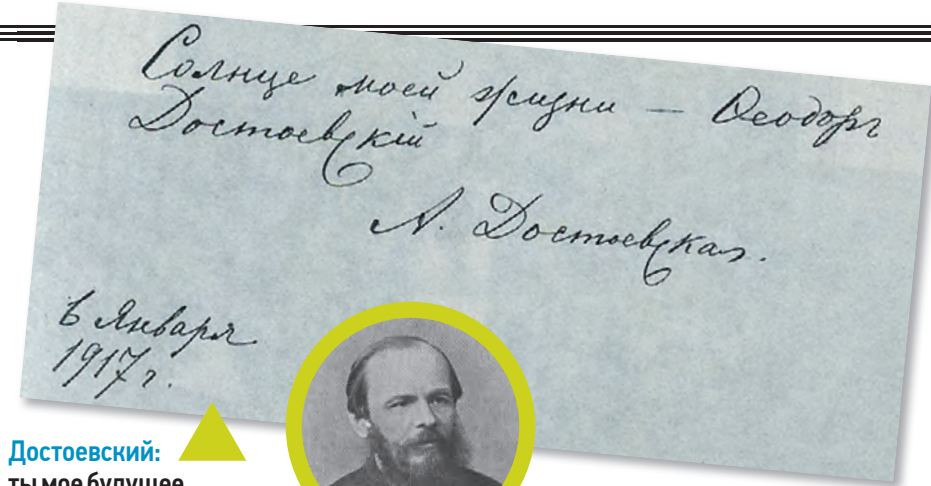 Солнце моей жизни — Ѳеодоръ
Достоевскій
А. Достоевская.
6 Января
1917 г.
Достоевский:
ты мое будущее